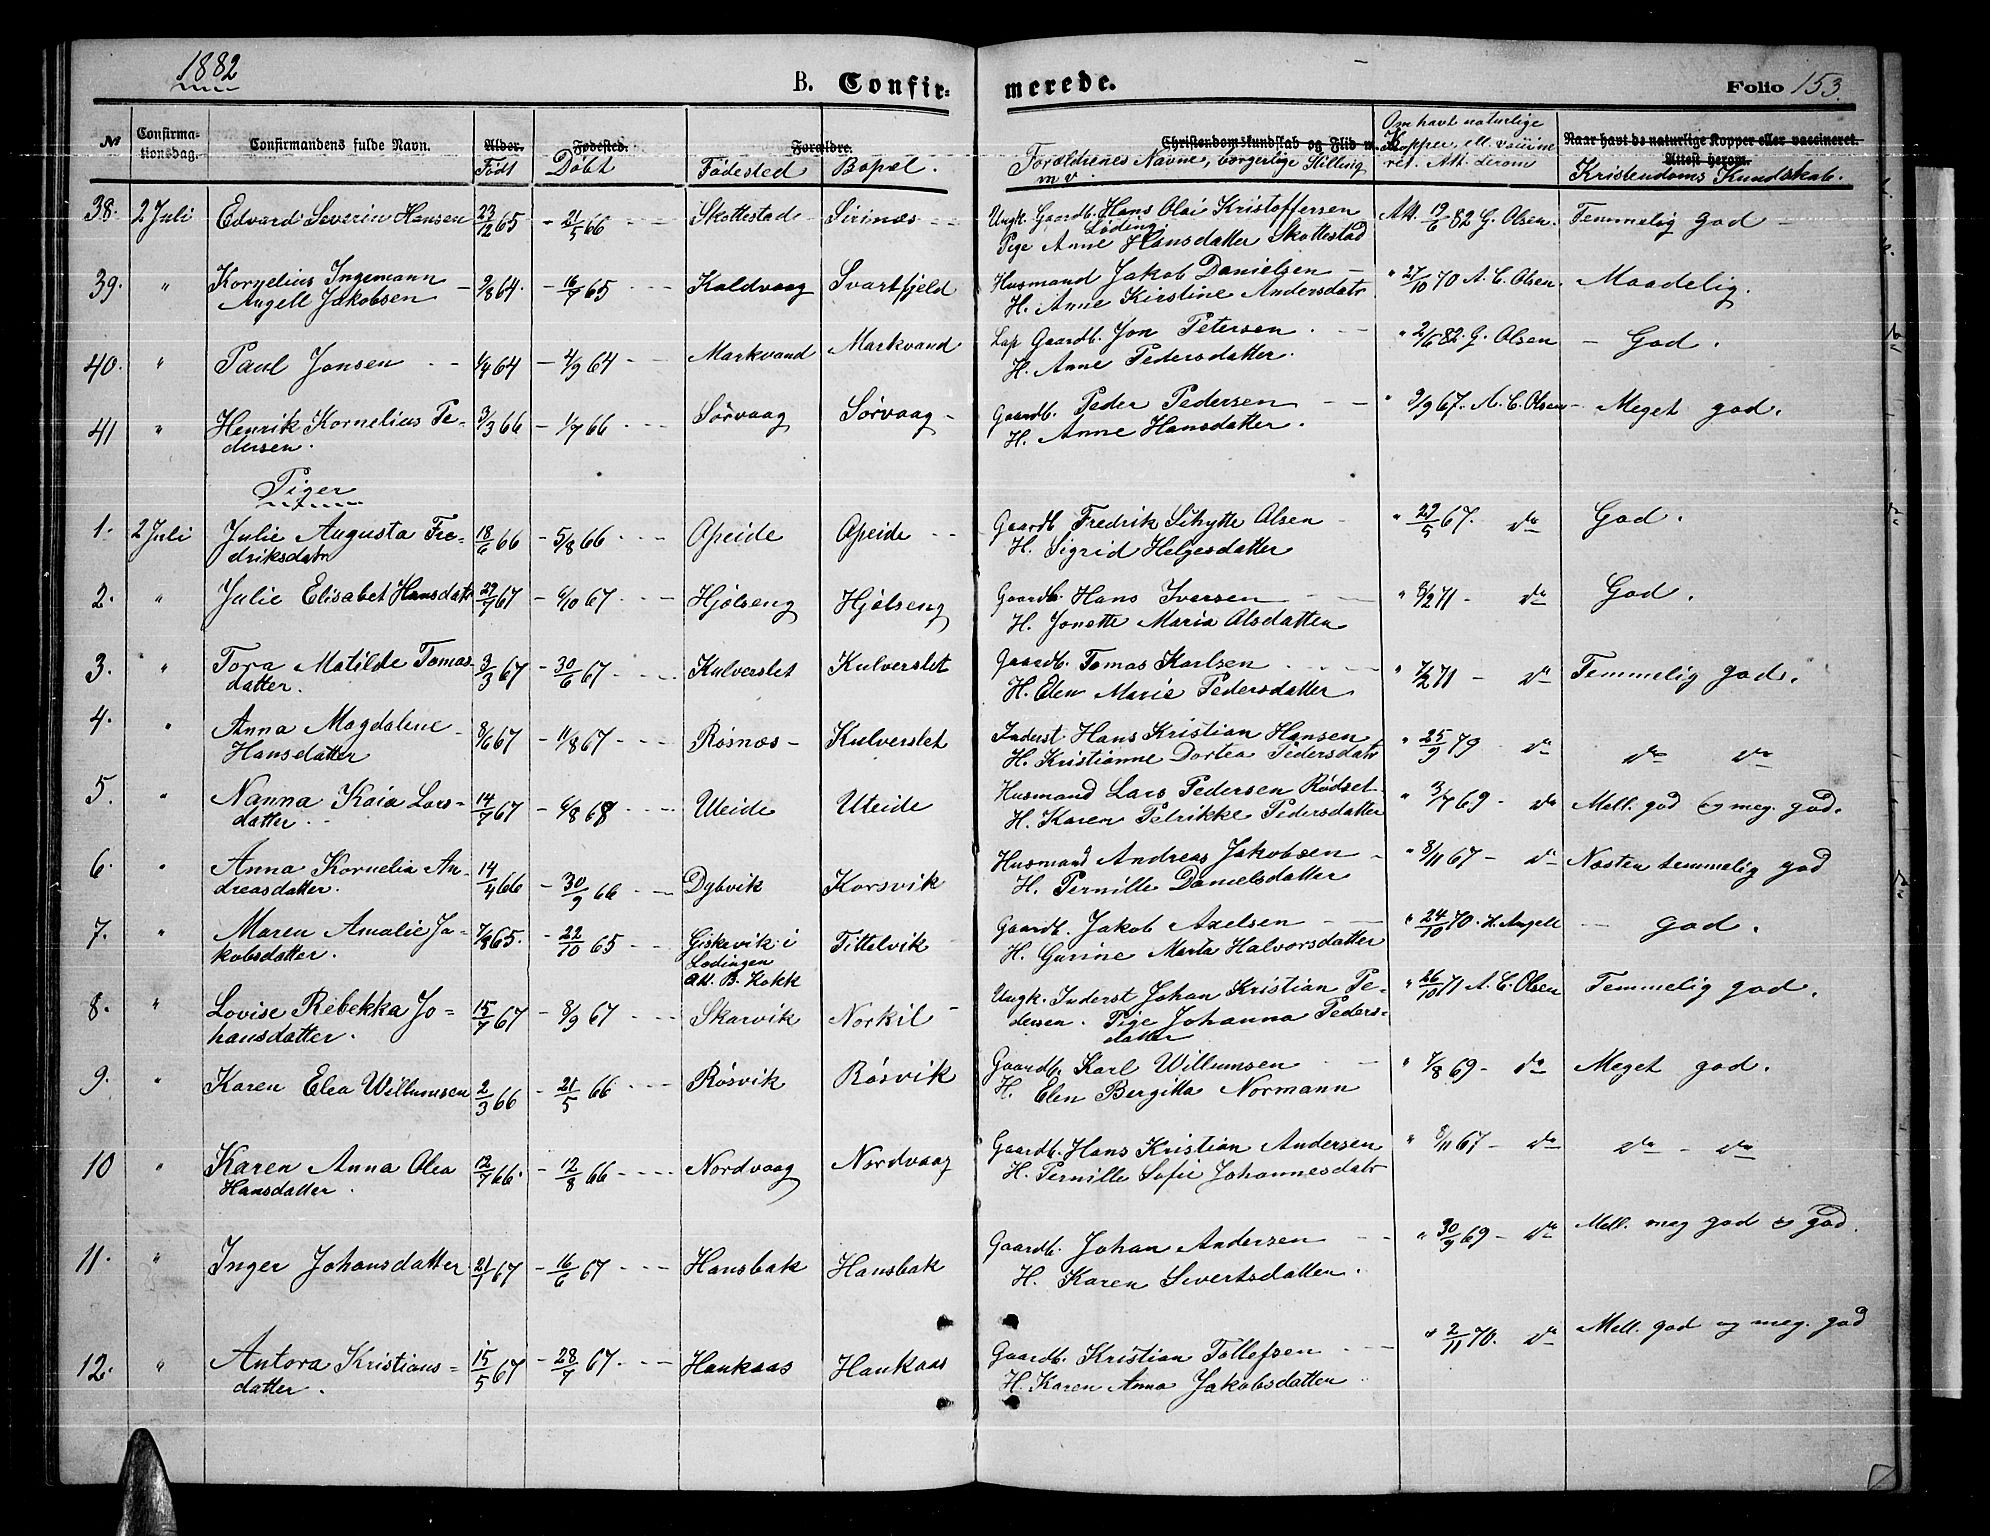 1882
B. Confirmerede.
Folio 153.
№ Confirmationsdag. Confirmandens fulde Navn. Alder. Født Fødested. Döbt Forældre. Födested Bopæl. Christendomskundskab og Flid m. Forældrenes Navne, borgerlige Stilling m v. Om havt naturlige Kopper, ell. vaccineret. Att. derom Naar havt de naturlige Kopper eller vaccineret. Attest herom. Kristendoms Kundskab.
38. 2 Juli Edvard Severin Hansen 23/12 65 - 21/5 66 Skottestad Sirinæs Ungk. Gaardb. Hans Olai Kristoffersen Att. 19/6 82 G. Olsen. Temmelig god
Löding.
Pige Anne Hansdatter Skottestad
39. " Kornelius Ingemann 2/8 64. - 16/7 65 Kaldvaag Svartfjeld Husmand Jakob Danielsen " 27/10 70 A. C. Olsen. Maadelig.
Angell Jakobsen H. Anne Kirstine Andersdatr
40. " Paul Jonsen 1/4 64 - 4/9 64 Markvand Markvand Lap Gaardb. Jon Petersen " 2/6 82. G. Olsen God.
H. Anne Pedersdatter.
41 " Henrik Kornelius Pe- 3/3 66 - 1/7 66 Sörvaag Sörvaag Gaardb. Peder Pedersen " 9/9 67. A. C. Olsen Meget god.
dersen. H. Anne Hansdatter.
Piger
1. 2 Juli Julie Augusta Fre- 18/6 66 - 5/8 66 Apeide Apeide Gaardb Fredrik Schytte Olsen " 29/5 67. do God.
driksdatr H. Sigrid Helgesdatter
2. " Julie Elisabet Hansdatr 29/7 67 - 6/10 67 Hjølseng Hjølseng Gaardb. Hans Iversen " 3/2 71 - do God.
H. Jonette Maria Olsdatter
3. " Tora Matilde Tomas- 3/3 67 - 30/6 67 Kulverslet Kulverslet Gaardb. Tomas Karlsen " 7/2 71 - do Temmelig god.
datter. H. Elen Marie Pedersdatter
4. " Anna Magdalene 8/6 67 - 11/8 67 Røsnæs Kulverslet Inderst Hans Kristian Hansen " 25/9 79 do do do
Hansdatter H. Kristianne Dortea Pedersdatr
5. " Nanna Kaia Lars- 14/7 67 - 6/8 68 Uteide Uteide Husmand Lars Pedersen Rødset " 3/7 69 - do Mell. god og meg. god.
datter. H. Karen Petrikke Pedersdatter
6. " Anna Kornelia An- 14/4 66 - 30/9 66 Dybvik Korsvik Husmand Andreas Jakobsen " 8/11 67 - do Næsten temmelig god
dreasdatter. H. Pernille Danielsdatter
7. " Maren Amalie Ja- 7/8 65. - 22/10 65 Giskevik i Tittelvik Gaardb. Jakob Axelsen " 24/10 70. H. Angell god.
kobsdatter. Lødingen H. Gurine Marta Halvorsdatter
att. B. Kokk
8. " Lovise Rebekka Jo- 15/7 67 - 8/9 67 Skarvik Norkil Ungk. Inderst Johan Kristian Pe- " 26/10 71 A. C. Olsen Temmelig god.
hansdatter. dersen. Pige Johanna Peders-
datter
9. " Karen Elea Willumsen 2/3 66 - 21/5 66 Røsvik Røsvik Gaardb. Karl Willumsen " 7/8 69 - do Meget god.
H. Elen Bergitta Normann
10 " Karen Anna Olea 12/7 66. - 12/8 66 Nordvaag Nordvaag Gaardb. Hans Kristian Andersen " 8/11 67 - do do - do
Hansdatter. H. Pernille Sofie Johannesdatr
11. " Inger Johansdatter 21/1 67 - 16/6 67 Hansbak Hansbak Gaardb. Johan Andersen " 30/9 69 - do Mell. meg god & god.
H. Karen Sivertsdatter.
12. " Antora Kristians- 15/5 67 - 28/7 67. Haukaas Haukaas Gaardb. Kristian Tollefsen " 2/11 70. do Mell. god og meg. god
datter. H. Karen Anna Jakobsdatter